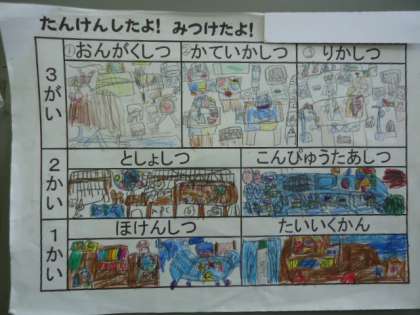 たんけんしたよ! みつけたよ!
3がい
①おんがくしつ
②かていかしつ
③りかしつ
2かい
としょしつ
こんぴゅうたあしつ
1かい
ほけんしつ
たいいくかん